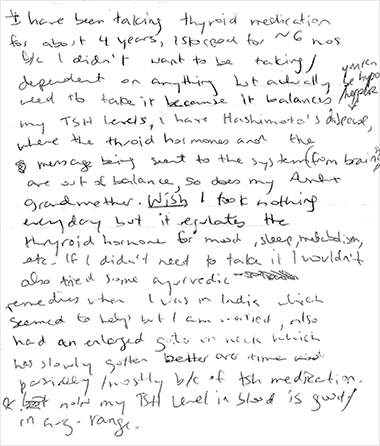 I have been taking thyroid medication
for about 4 years, I stopped for ~6 mos
b/c I didn't want to be taking/
dependent on anything but actually
need to take it because it balances
my TSH levels, I have Hashimoto's disease,
where the throid hormones and the
message being sent to the system (from brain)
are out of balance, so does my Aunt &
grandmother. Wish I took nothing
everyday but it regulates the
thyroid hormone for mood, sleep, metabolism,
etc. If I didn't need to take it I wouldn't
also tried some ayurvedic
remedies when I was in India which
seemed to help but I am worried, also
had an enlarged goiter on neck which
has slowly gotten better over time and
possibly/mostly b/c of tsh medication.
& now my TSH level in blood is good/
in avg. range.